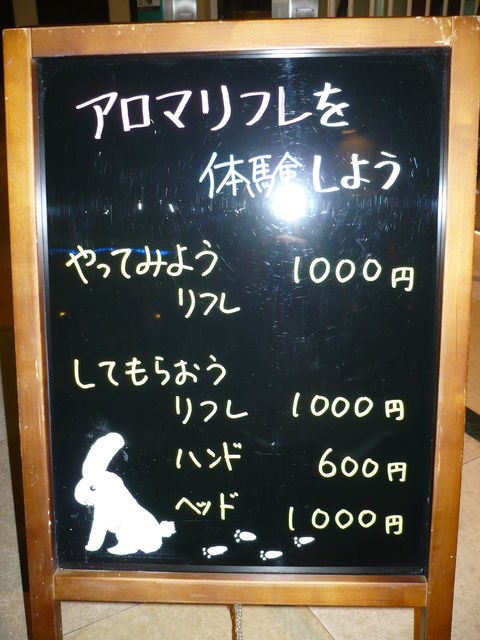 アロマリフレを
体験しよう
やってみよう 1000円
リフレ
してもらおう
リフレ 1000円
ハンド 600円
ヘッド 1000円